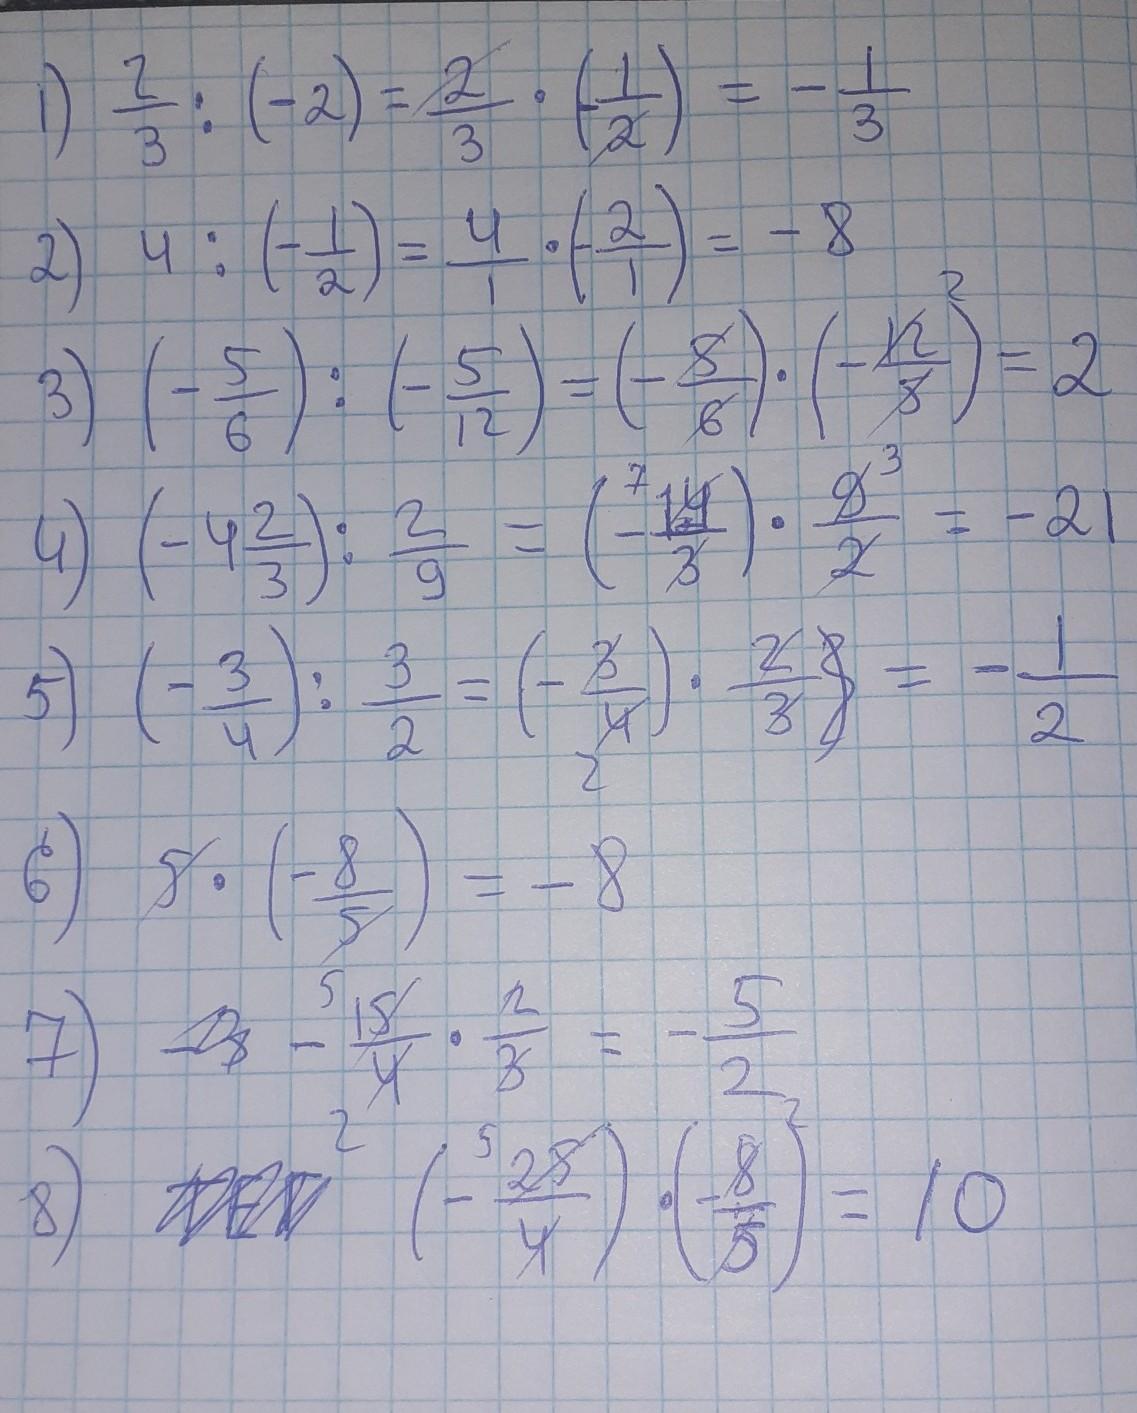 1) 2/3 : (-2) = 2/3 · (-1/2) = -1/3
2) 4 : (-1/2) = 4/1 · (-2/1) = -8
3) (-5/6) : (-5/12) = (-5/6) · (-12/5) 2 = 2
4) (-4 2/3) : 2/9 = (- 7 14/3) · 9/2 3 = -21
5) (-3/4) : 3/2 = (-3/4 2) · 2/3 = -1/2
6) 5 · (-8/5) = -8
7) - 5 15/4 2 · 2/3 = -5/2
8) (- 5 25/4) · (-8/5) 2 = 10